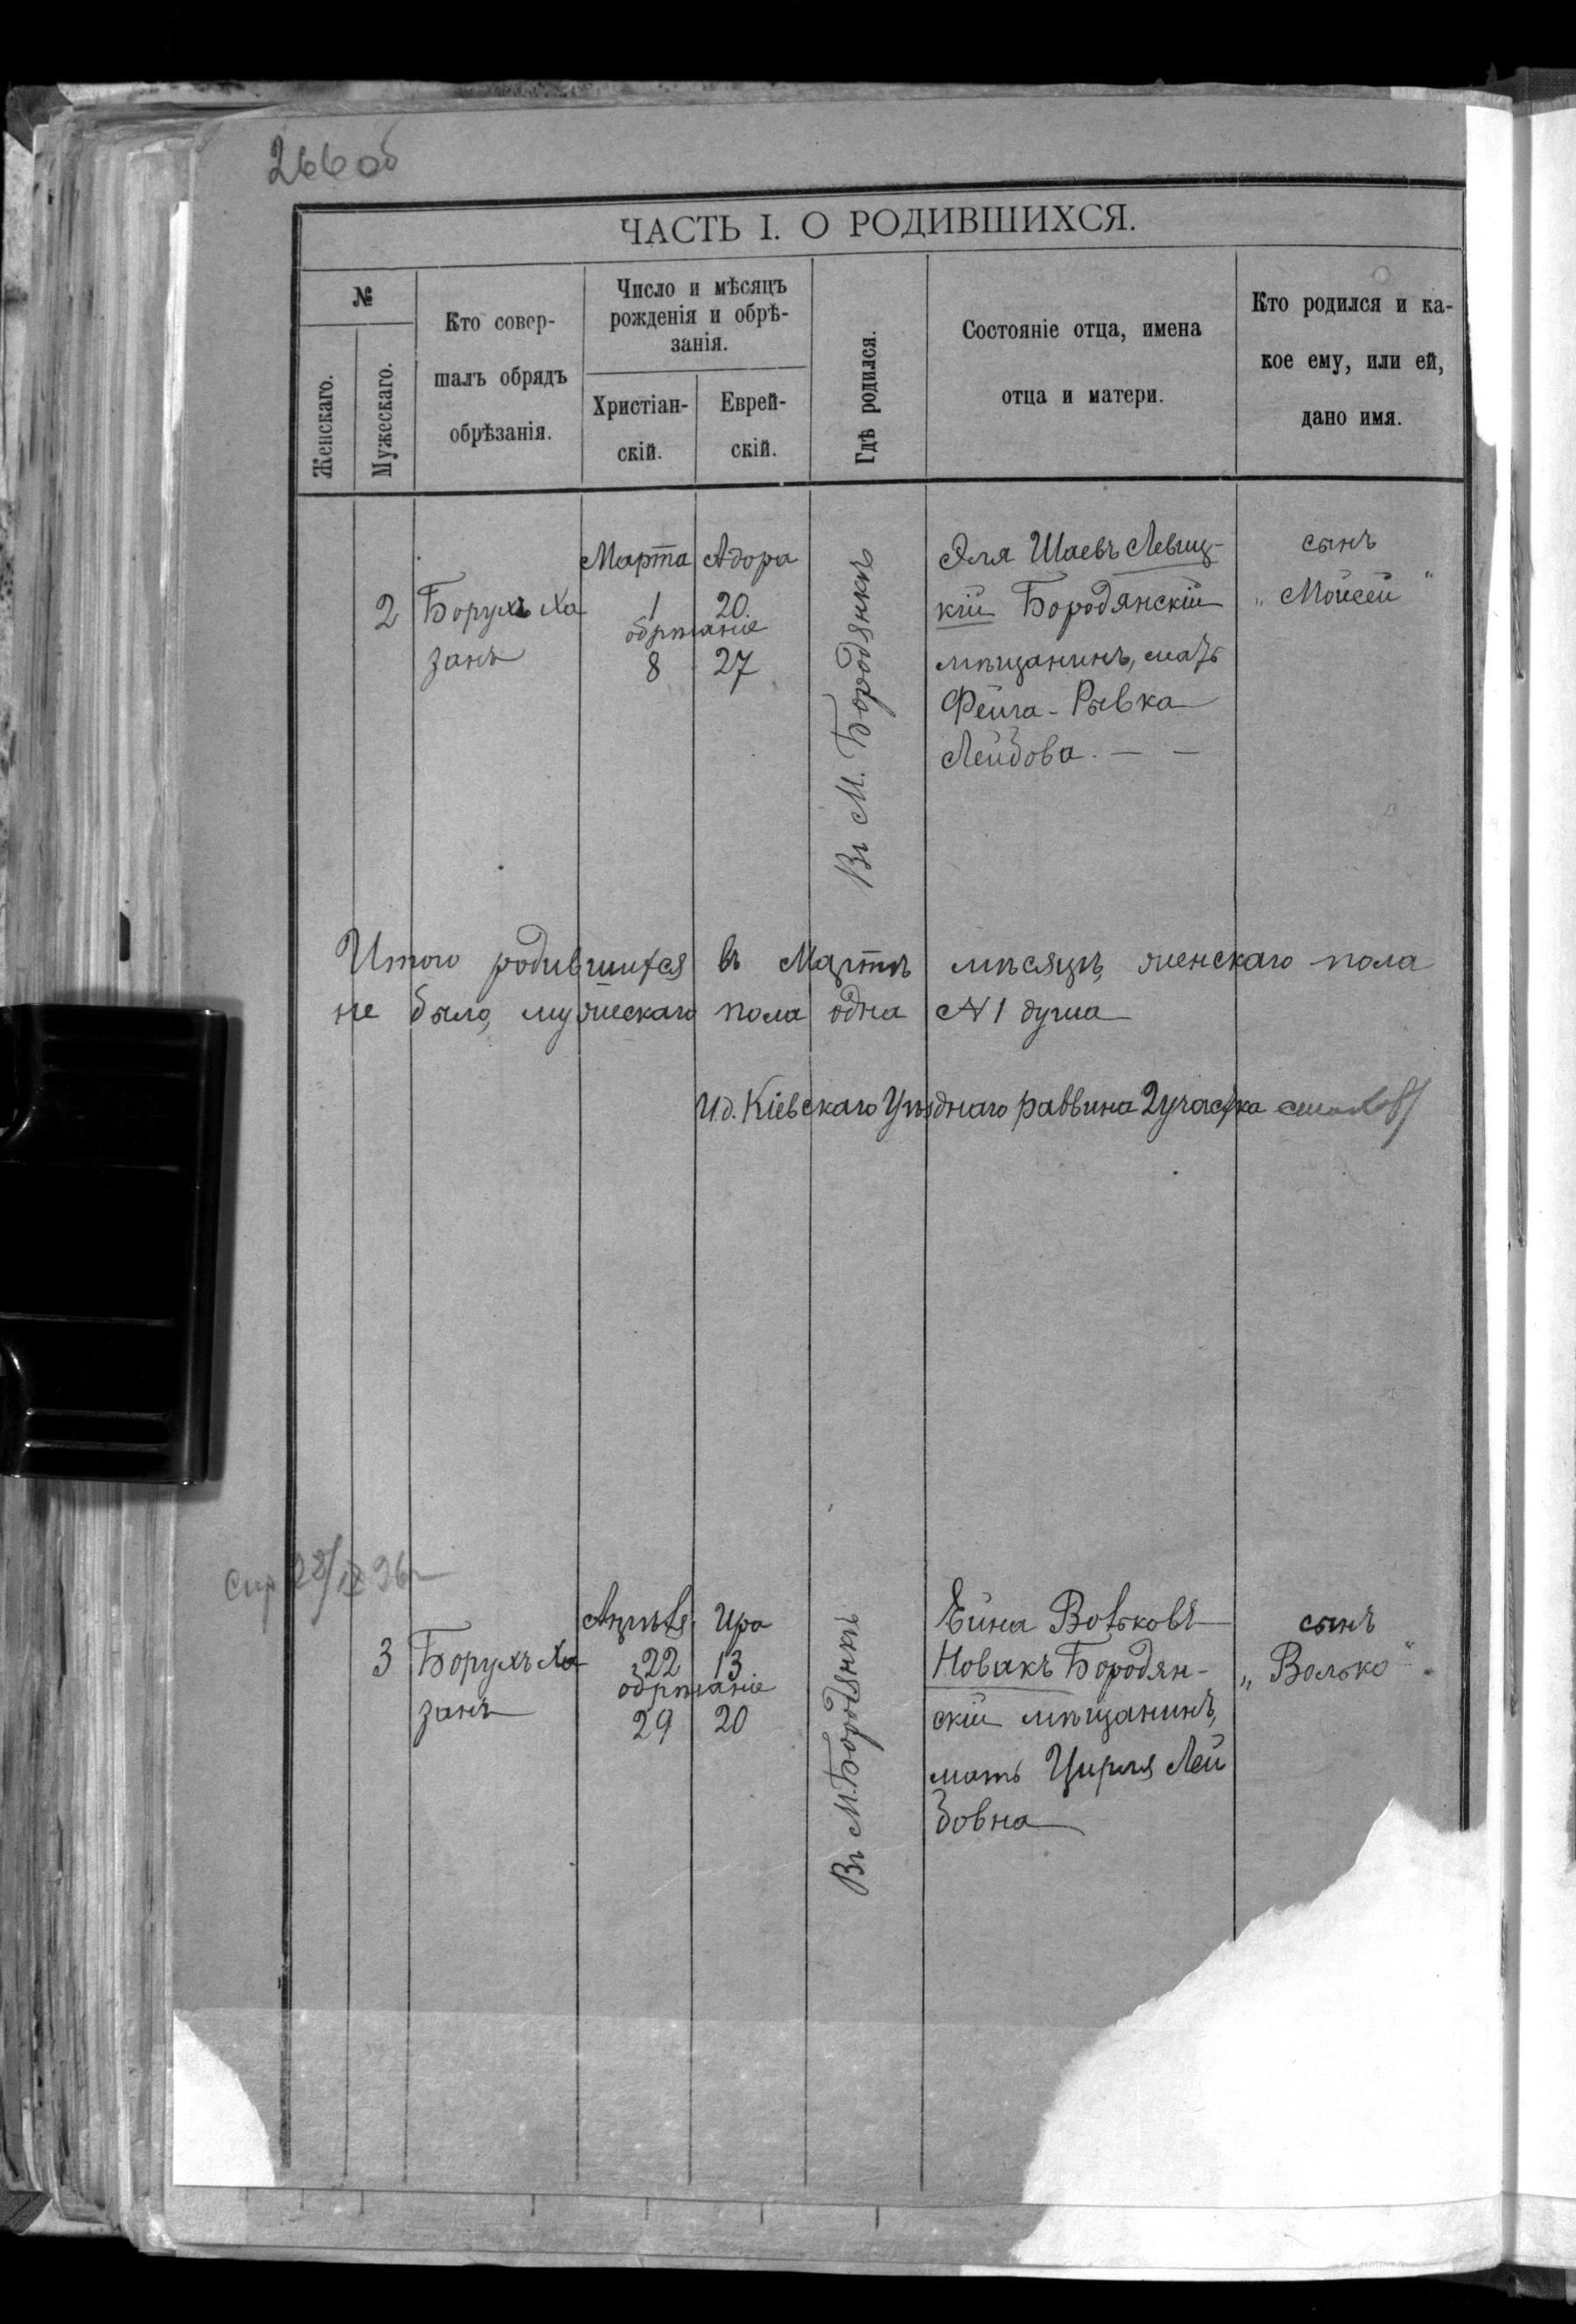 266 об
ЧАСТЬ I. О РОДИВШИХСЯ.
№
Женскаго.
Мужескаго.
Кто совер-
шалъ обрядъ
обрѣзанія.
Число и мѣсяцъ
рожденія и обрѣ-
занія.
Христіан-
скій.
Еврей-
скій.
Гдѣ родился.
Состояніе отца, имена
отца и матери.
Кто родился и ка-
кое ему, или ей,
дано имя.
2
Борухъ Ха
занъ
Марта Адора
1 20
обрѣзаніе
8 27
Въ М. Бородянкѣ
Эля Шаевъ Левиц-
кій Бородянскій
мѣщанинъ, мать
Фейга-Рывка
Лейбова. — —
сынъ
„Мойсей"
Итого родившихся въ Мартѣ мѣсяцѣ, женскаго пола
не было, мужескаго пола одна № 1 душа
И.д. Кіевскаго Уѣзднаго раввина 2 участка
3
Борухъ Ха
занъ
Апрѣля Ира
22 13
обрѣзаніе
29 20
Въ М. Бородянкѣ
Ейна Вольковъ
Новакъ Бородян-
скій мѣщанинъ,
мать Цирля Лей
бовна
сынъ
„Волько"